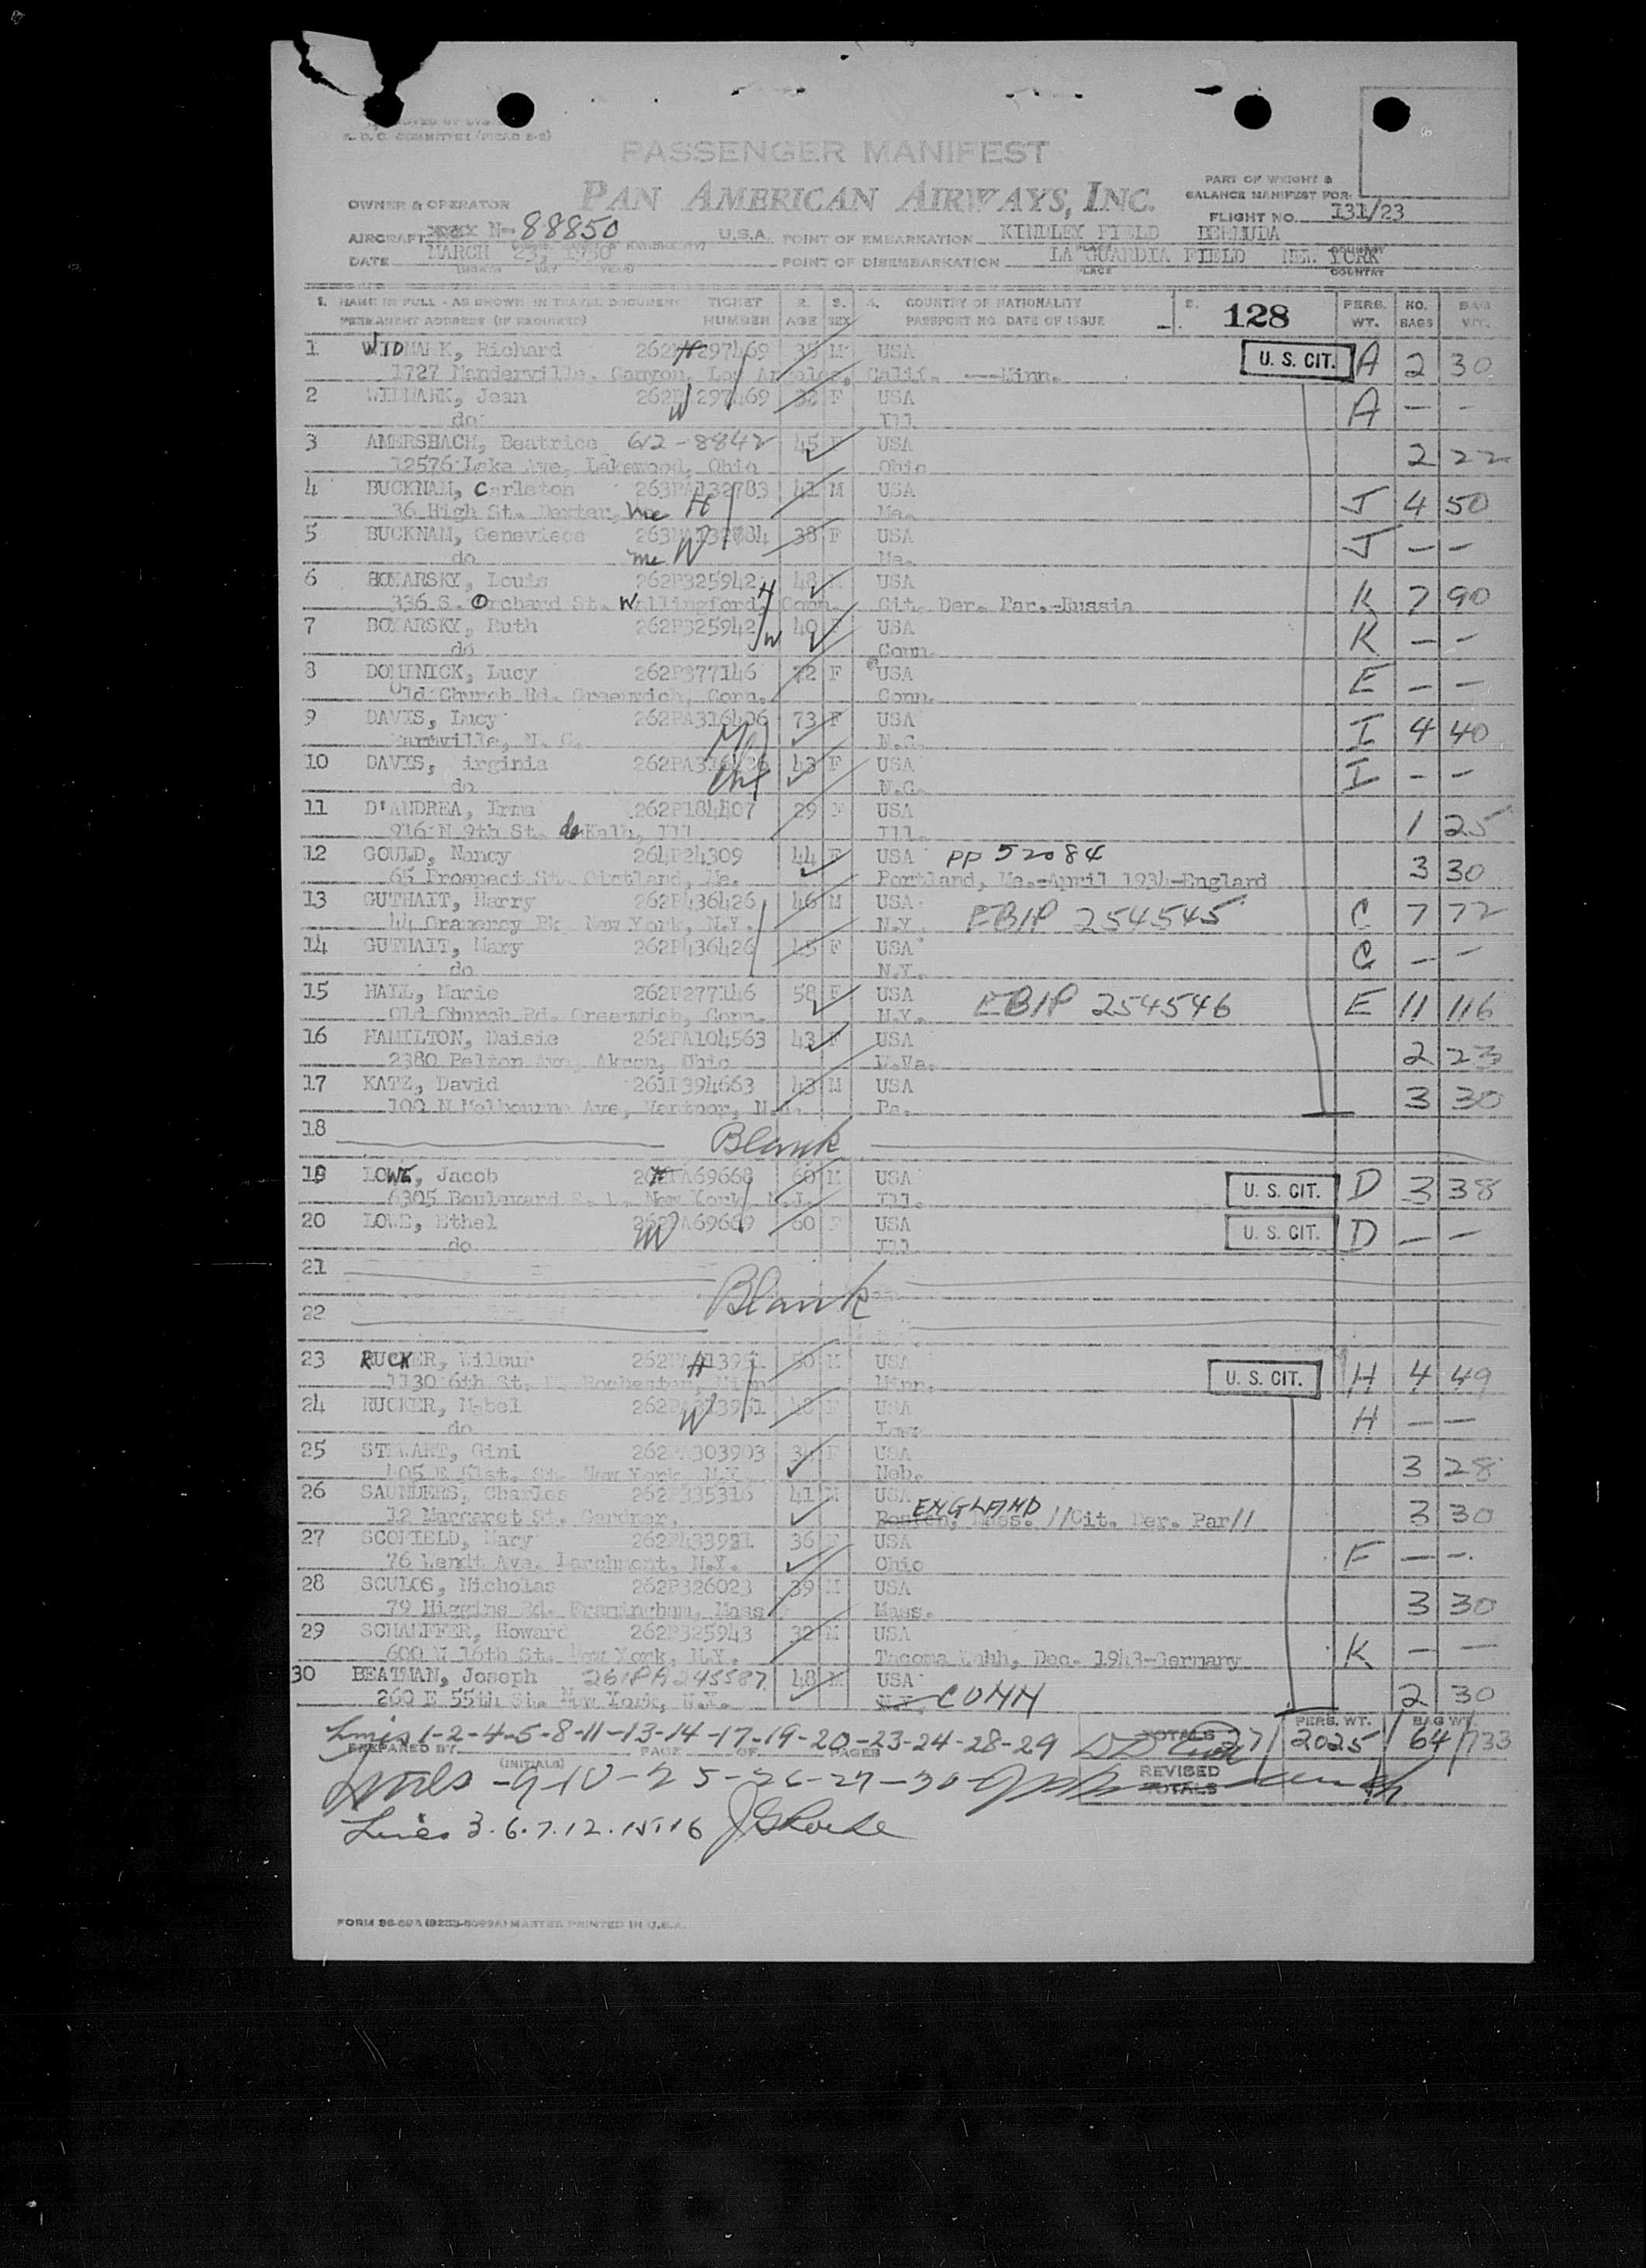 A. D. C. COMMITTEE
PASSENGER MANIFEST
PAN AMERICAN AIRWAYS, INC.
PART OF WEIGHT &
BALANCE MANIFEST FOR:
OWNER & OPERATOR
FLIGHT NO. 131/23
AIRCRAFT N-88850 U.S.A. POINT OF EMBARKATION KINDLEY FIELD BERMUDA
DATE MARCH 23, 1950 POINT OF DISEMBARKATION LA GUARDIA FIELD NEW YORK
PLACE COUNTRY
1. NAME IN FULL - AS SHOWN IN TRAVEL DOCUMENT TICKET 2. 3. 4. COUNTRY OF NATIONALITY 5. 128 PERS. NO. BAG
PERMANENT ADDRESS (IF REQUIRED) NUMBER AGE SEX PASSPORT NO. DATE OF ISSUE WT. BAGS WT.
1 WIDMARK, Richard H M USA U. S. CIT. A 2 30
1727 Manderville, Canyon, Los Angeles, Calif. Minn.
2 WIDMARK, Jean W 32 F USA A — —
do Ill
3 AMERSBACH, Beatrice 612-8842 45 USA 2 22
12576 Lake Ave, Lakewood, Ohio Ohio
4 BUCKNAM, Carlston 263PA132783 41 M USA J 4 50
36 High St. Dexter, Me H Me.
5 BUCKNAM, Genevieve 38 F USA J — —
do me W Me.
6 BOMARSKY, Louis 262P325942 H 48 USA K 7 90
336 S. Orchard St. Wallingford, Conn. Cit. Der. Par.-Russia
7 BOMARSKY, Ruth 262P325942 W 40 USA K — —
do Conn.
8 DOMINICK, Lucy 262P377146 72 F USA E — —
Old Church Rd. Greenwich, Conn. Conn.
9 DAVIS, Lucy 262PA316406 73 F USA I 4 40
N. C. N.C.
10 DAVIS, irginia 43 F USA I — —
do N.C.
11 D'ANDREA, Irma 262P184407 29 USA 1 25
916 N 9th St. de Kalb, Ill Ill.
12 GOULD, Nancy 264P24309 44 F USA PP 52084 3 30
65 Prospect St. Me. Portland, Me.-April 1934-England
13 GUTHAIT, Harry 262P436426 46 M USA C 7 72
44 Gramercy Pk New York, N.Y. N.Y. EBIP 254545
14 GUTHAIT, Mary 262P436426 45 F USA C — —
do N.Y.
15 HALL, Marie 262P277146 58 F USA EBIP 254546 E 11 116
Old Church Rd. Greenwich, Conn. N.Y.
16 HAMILTON, Daisie 262PA104563 43 F USA 2 23
2380 Pelton Ave, Akron, Ohio W.Va.
17 KATZ, David 394663 43 M USA 3 30
100 N Melbourne Ave, Ventnor, N.J. Pa.
18 Blank
19 LOWE, Jacob H 60 M USA U. S. CIT. D 3 38
6305 Boulevard New York, N.J. Ill.
20 LOWE, Ethel W 60 F USA U. S. CIT. D — —
do Ill
21 Blank
22
23 RUCKER, Wilbur H 50 M USA U. S. CIT. H 4 49
1130 6th St. Rochester, Minn Minn.
24 RUCKER, Mabel W 48 F USA H — —
do
25 STEWART, Gini 303903 F USA 3 28
405 E 51st. St. New York, N.Y. Neb.
26 SAUNDERS, Charles 335316 41 M USA 3 30
12 Margaret St. Gardner, ENGLAND Boston, Mass. //Cit. Der. Par//
27 SCOFIELD, Mary 36 F USA F — —
76 Ave. Larchmont, N.Y. Ohio
28 SCULOS, Nicholas 262P326023 39 M USA 3 30
79 Higgins Rd. Framingham, Mass Mass.
29 SCHAEFFER, Howard 262P325943 32 M USA K — —
600 W 16th St. New York, N.Y. Tacoma Wahh, Dec. 1943-Germany
30 BEATMAN, Joseph 261PA245587 48 M USA 2 30
260 E 55th St. New York, N.Y. N.Y. CONN
Lines 1-2-4-5-8-11-13-14-17-19-20-23-24-28-29 TOTALS 27 PERS. WT. 2025 BAG WT. 64/733
PREPARED BY (INITIALS) PAGE OF PAGES
Lines -9-10-25-26-27-30 REVISED TOTALS
Lines 3.6.7.12.15.16
FORM MASTER PRINTED IN U.S.A.